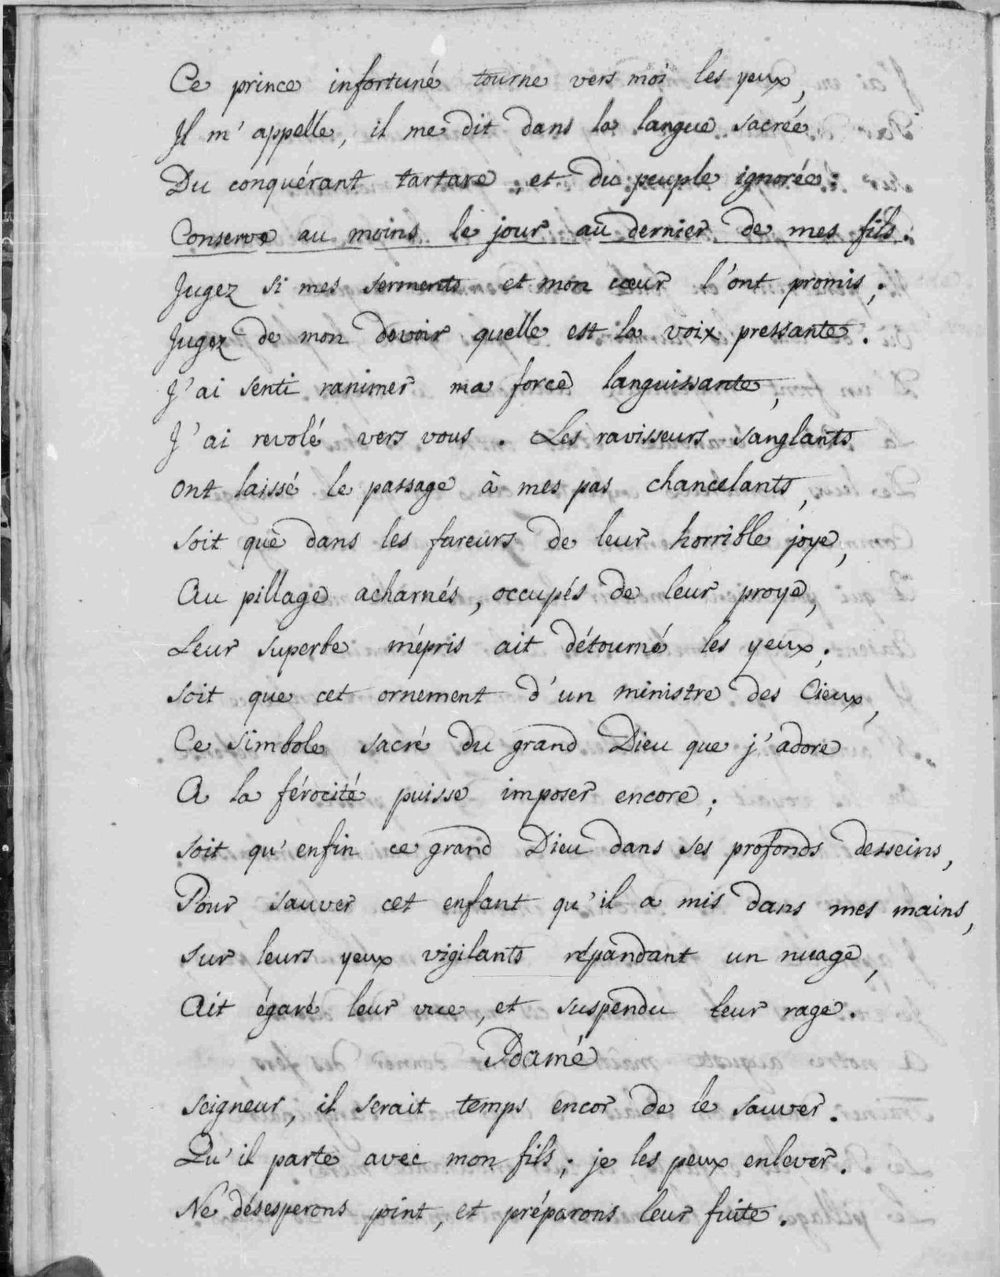 Ce prince infortuné tourne vers moi les yeux,
Il m'appelle, il me dit dans la langue sacrée
Du conquérant tartare, et du peuple ignorée:
Conserve au moins le jour au dernier de mes fils.
Jugez si mes serments et mon cœur l'ont promis;
Jugez de mon devoir quelle est la voix pressante.
J'ai senti ranimer ma force languissante,
J'ai revolé vers vous. Les ravisseurs sanglants
ont laissé le passage à mes pas chancelants,
soit que dans les fureurs de leur horrible joye,
Au pillage acharnés, occupés de leur proye,
Leur superbe mépris ait détourné les yeux;
soit que cet ornement d'un ministre des Cieux,
Ce simbole sacré du grand Dieu que j'adore
A la férocité puisse imposer encore;
soit qu'enfin ce grand Dieu dans ses profonds desseins,
Pour sauver cet enfant qu'il a mis dans mes mains,
sur leurs yeux vigilants répandant un nuage,
Ait égaré leur vue, et suspendu leur rage.
Idamé
seigneur, il serait temps encor de le sauver.
Qu'il parte avec mon fils; je les peux enlever.
Ne désesperons point, et préparons leur fuite.